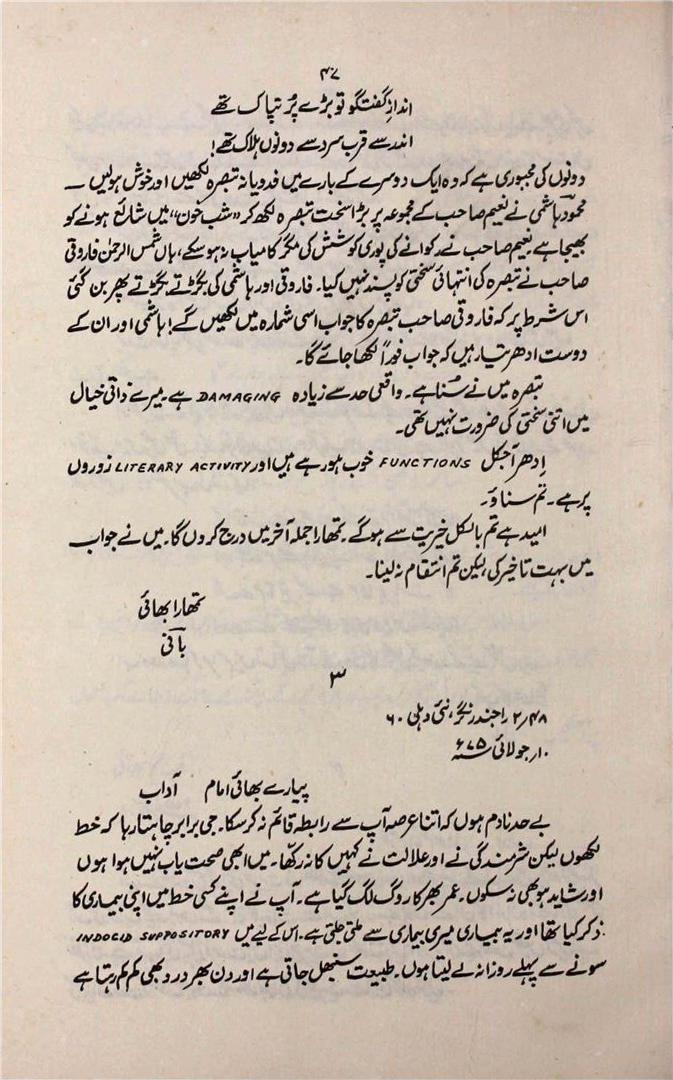 ۴۷
اندازِ گفتگو تو بڑے پُر تپاک تھے
اندر سے قرب سرد سے دونوں ہلاک تھے!
دونوں کی مجبوری ہے کہ وہ ایک دوسرے کے بارے میں فدویانہ تبصرہ لکھیں اور خوش ہولیں —
محمود ہاشمی نے نعیم صاحب کے مجموعہ پر بڑا سخت تبصرہ لکھ کر ”شب خون“ میں شائع ہونے کو
بھیجا ہے نعیم صاحب نے رکوانے کی پوری کوشش کی مگر کامیاب نہ ہو سکے، ہاں شمس الرحمٰن فاروقی
صاحب نے تبصرہ کی انتہائی سختی کو پسند نہیں کیا۔ فاروقی اور ہاشمی کی بگڑتے بگڑتے پھر بن گئی
اس شرط پر کہ فاروقی صاحب تبصرہ کا جواب اسی شمارہ میں لکھیں گے! ہاشمی اور ان کے
دوست ادھر تیار ہیں کہ جواب فوراً لکھا جائے گا۔
تبصرہ میں نے سُنا ہے۔ واقعی حد سے زیادہ DAMAGING ہے۔ میرے ذاتی خیال
میں اتنی سختی کی ضرورت نہیں تھی۔
اِدھر آجکل FUNCTIONS خوب ہو رہے ہیں اور LITERARY ACTIVITY زوروں
پر ہے۔ تم سناؤ۔
امید ہے تم بالکل خیریت سے ہوگے۔ تمھارا جملہ آخر میں درج کروں گا۔ میں نے جواب
میں بہت تاخیر کی، لیکن تم انتقام نہ لینا۔
تمھارا بھائی
بانی
۳
۲/۴۸ راجندر نگر، نئی دہلی ۶۰
۱۰ر جولائی ۷۵ء
پیارے بھائی امام آداب
بے حد نادم ہوں کہ اتنا عرصہ آپ سے رابطہ قائم نہ کر سکا۔ جی برابر چاہتا رہا کہ خط
لکھوں لیکن شرمندگی نے اور علالت نے کہیں کا نہ رکھا۔ میں ابھی صحت یاب نہیں ہوا ہوں
اور شاید ہو بھی نہ سکوں۔ عمر بھر کا روگ لگ گیا ہے۔ آپ نے اپنے کسی خط میں اپنی بیماری کا
ذکر کیا تھا اور یہ بیماری میری بیماری سے ملتی جلتی ہے۔ اس کے لیے میں INDOCID SUPPOSITORY
سونے سے پہلے روزانہ لے لیتا ہوں۔ طبیعت سنبھل جاتی ہے اور دن بھر درد بھی کم کم رہتا ہے